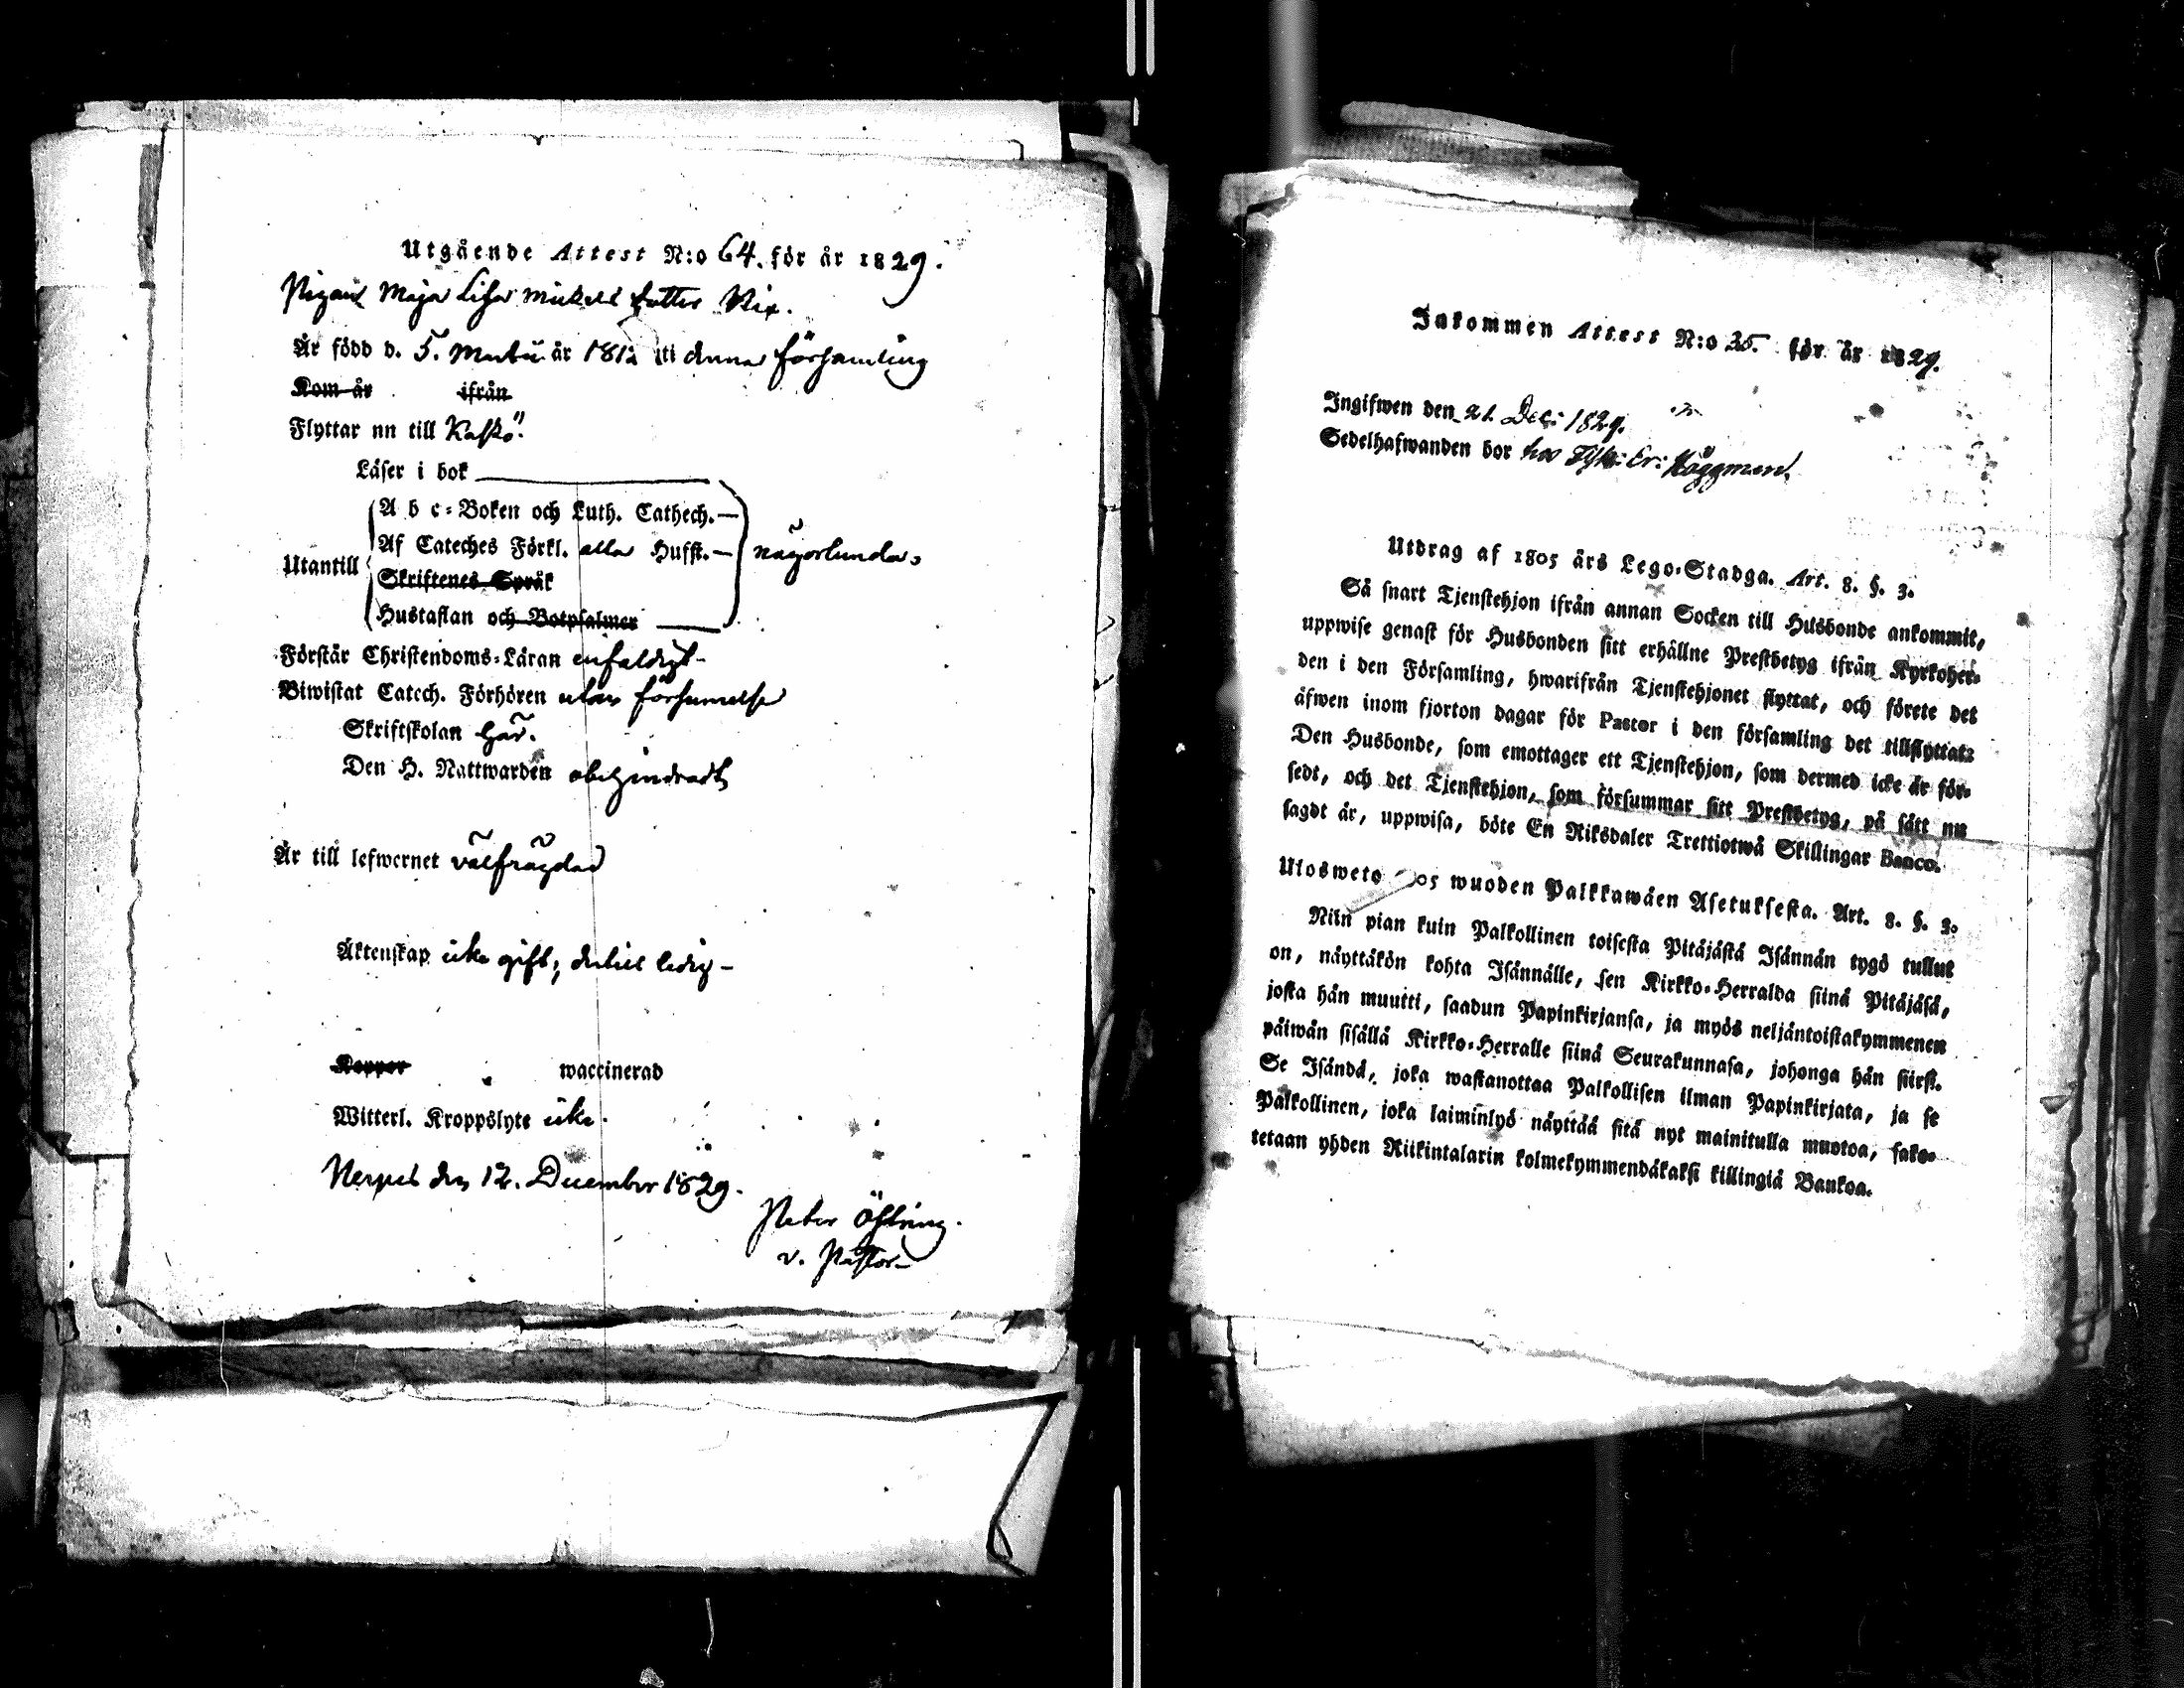 Utgående Attest N:o 64. för år 1829.
Pigan Maja Lisa Mickels dotter Rix.
År född d. 5. Martii år 1812 iti denna församling
Kom år ifrån
Flyttar nn till Kaskö.
Läser i bok
A b c-Boken och Luth. Cathech.
Af Cateches Förkl. alla Hufst. någorlunda
Utantill
Skriftenes Språk
Hustaflan och Botpsalmer
Förstår Christendoms-Läran enfaldigt
Biwistat Catech. Förhören utan försummelse
Skriftskolan här.
Den H. Nattwarden obehindradt
År till lefwernet välfrägdad
Äktenskap icke gift; ledig
Koppor waccinerad
Witterl. Kroppslyte icke.
Nerpes den 12. December 1829.
Peter Östring.
v. Pastor
Inkommen Attest N:o 35. för år 1829.
Ingifwen den 21 Dec: 1829.
Sedelhafwanden bor hos Er: Häggman.
Utdrag af 1805 års Lego-Stadga. Art. 8. §. 3.
Så snart Tjenstehjon ifrån annan Socken till Husbonde ankommit,
uppwise genast för Husbonden sitt erhållne Prestbetyg ifrån Kyrkoher-
den i den Församling, hwarifrån Tjenstehjonet flyttat, och förete det
äfwen inom fjorton dagar för Pastor i den församling det tillflyttat.
Den Husbonde, som emottager ett Tjenstehjon, som dermed icke är för-
sedt, och det Tjenstehjon, som försummar sitt Prestbetyg, på sätt nu
sagdt är, uppwisa, böte En Riksdaler Trettiotwå Skillingar Banco.
Ulosweto 05 wuoden Palkkawäen Asetuksesta. Art. 8. §. 3.
Niin pian kuin Palkollinen toisesta Pitäjästä Isännän tygö tullut
on, näyttäkön kohta Isännälle, sen Kirkko-Herralda siinä Pitäjäsä,
josta hän muutti, saadun Papinkirjansa, ja myös neljäntoistakymmenen
päiwän sisällä Kirkko-Herralle siinä Seurakunnasa, johonga hän siirsi.
Se Isändä, joka wastanottaa Palkollisen ilman Papinkirjata, ja se
Palkollinen, joka laiminlyö näyttää sitä nyt mainitulla muotoa, sako-
tetaan yhden Riikintalarin kolmekymmendäkaksi killingiä Bankoa.